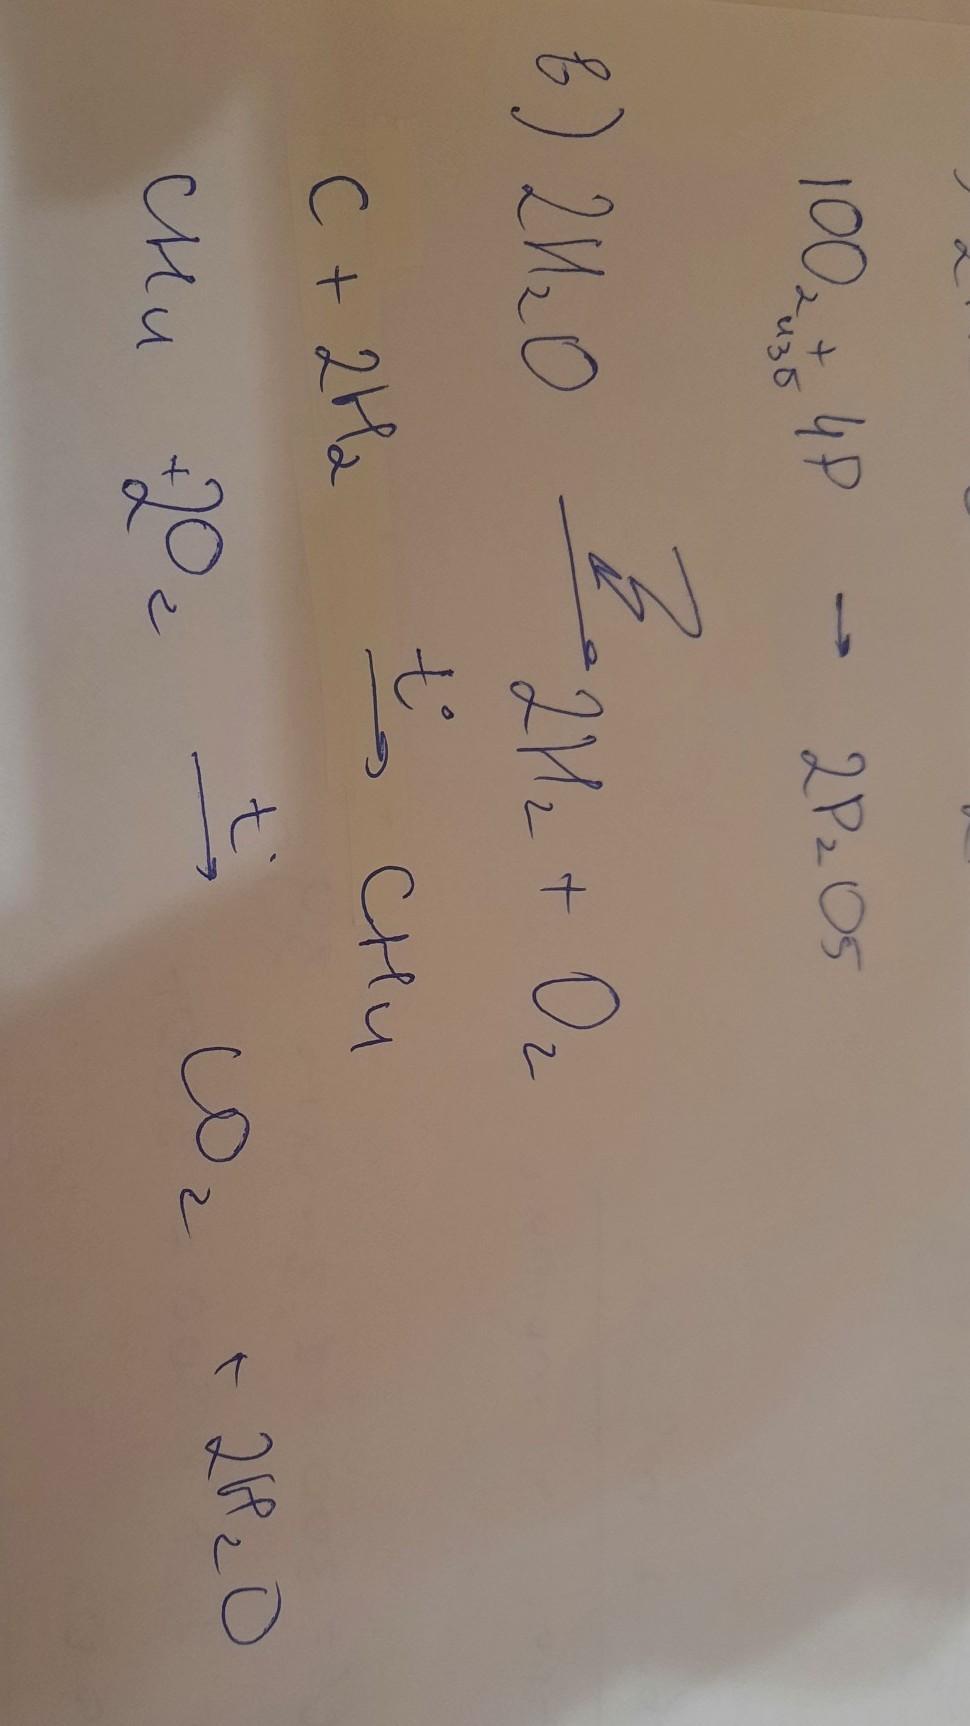 10O₂ изб + 4P → 2P₂O5
в) 2H₂O → 2H₂ + O₂
C + 2H₂ t° → CH4
CH4 + 2O₂ t° → CO₂ + 2H₂O